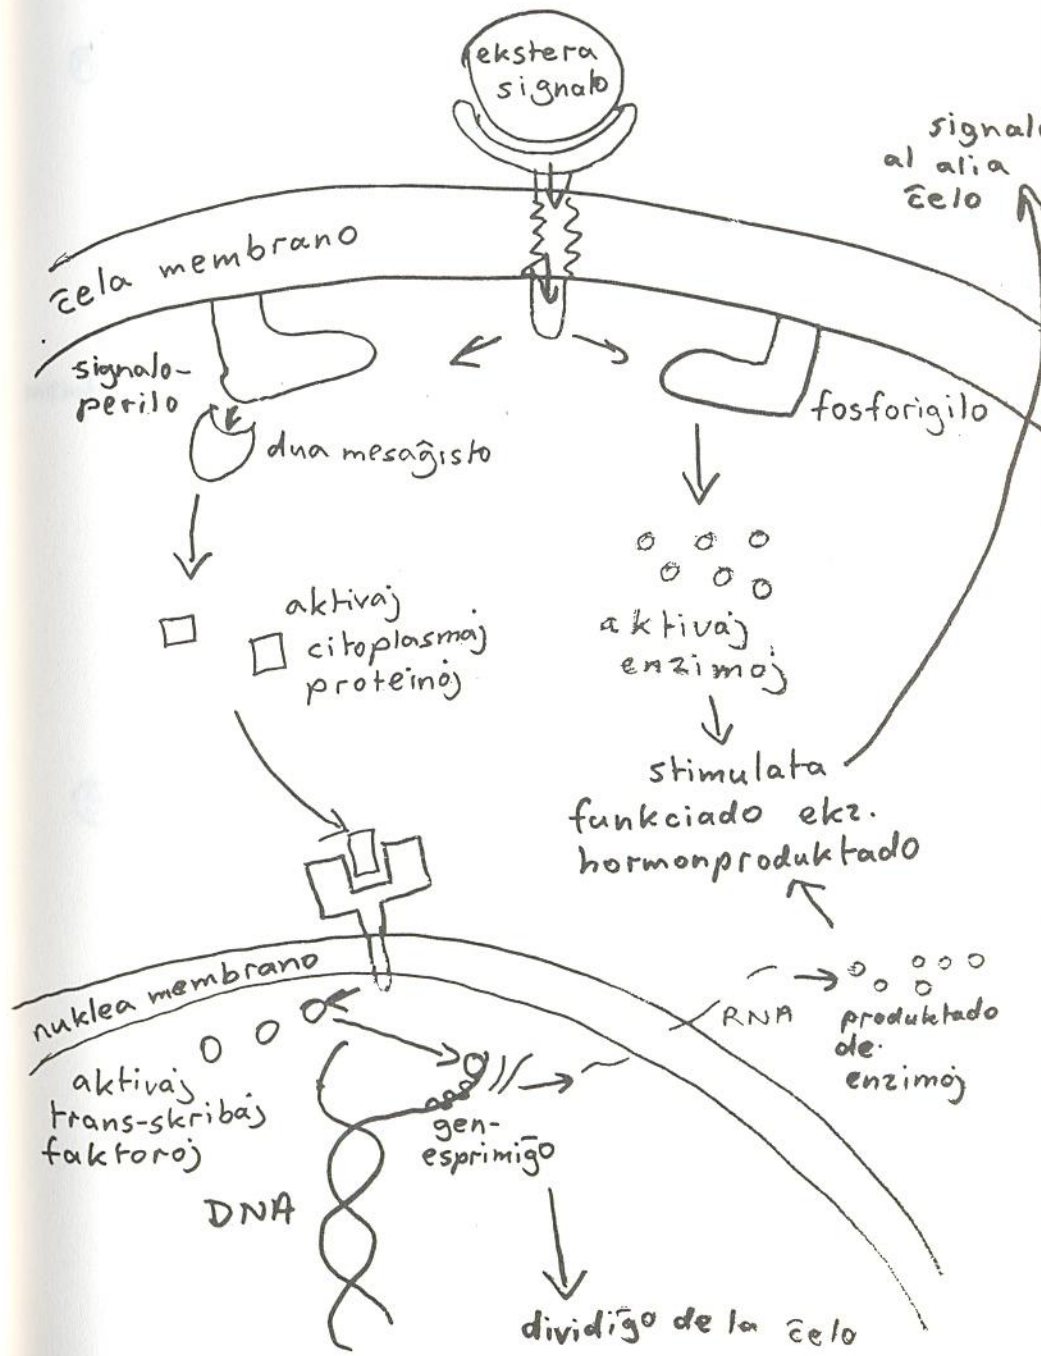 ekstera
signalo
signalo
al alia
ĉelo
ĉela membrano
signalo-
perilo
dua mesaĝisto
fosforigilo
aktivaj
citoplasmaj
proteinoj
aktivaj
enzimoj
stimulata
funkciado ekz.
hormonproduktado
nuklea membrano
RNA
produktado
de
enzimoj
aktivaj
trans-skribaj
faktoroj
gen-
esprimiĝo
DNA
dividiĝo de la ĉelo